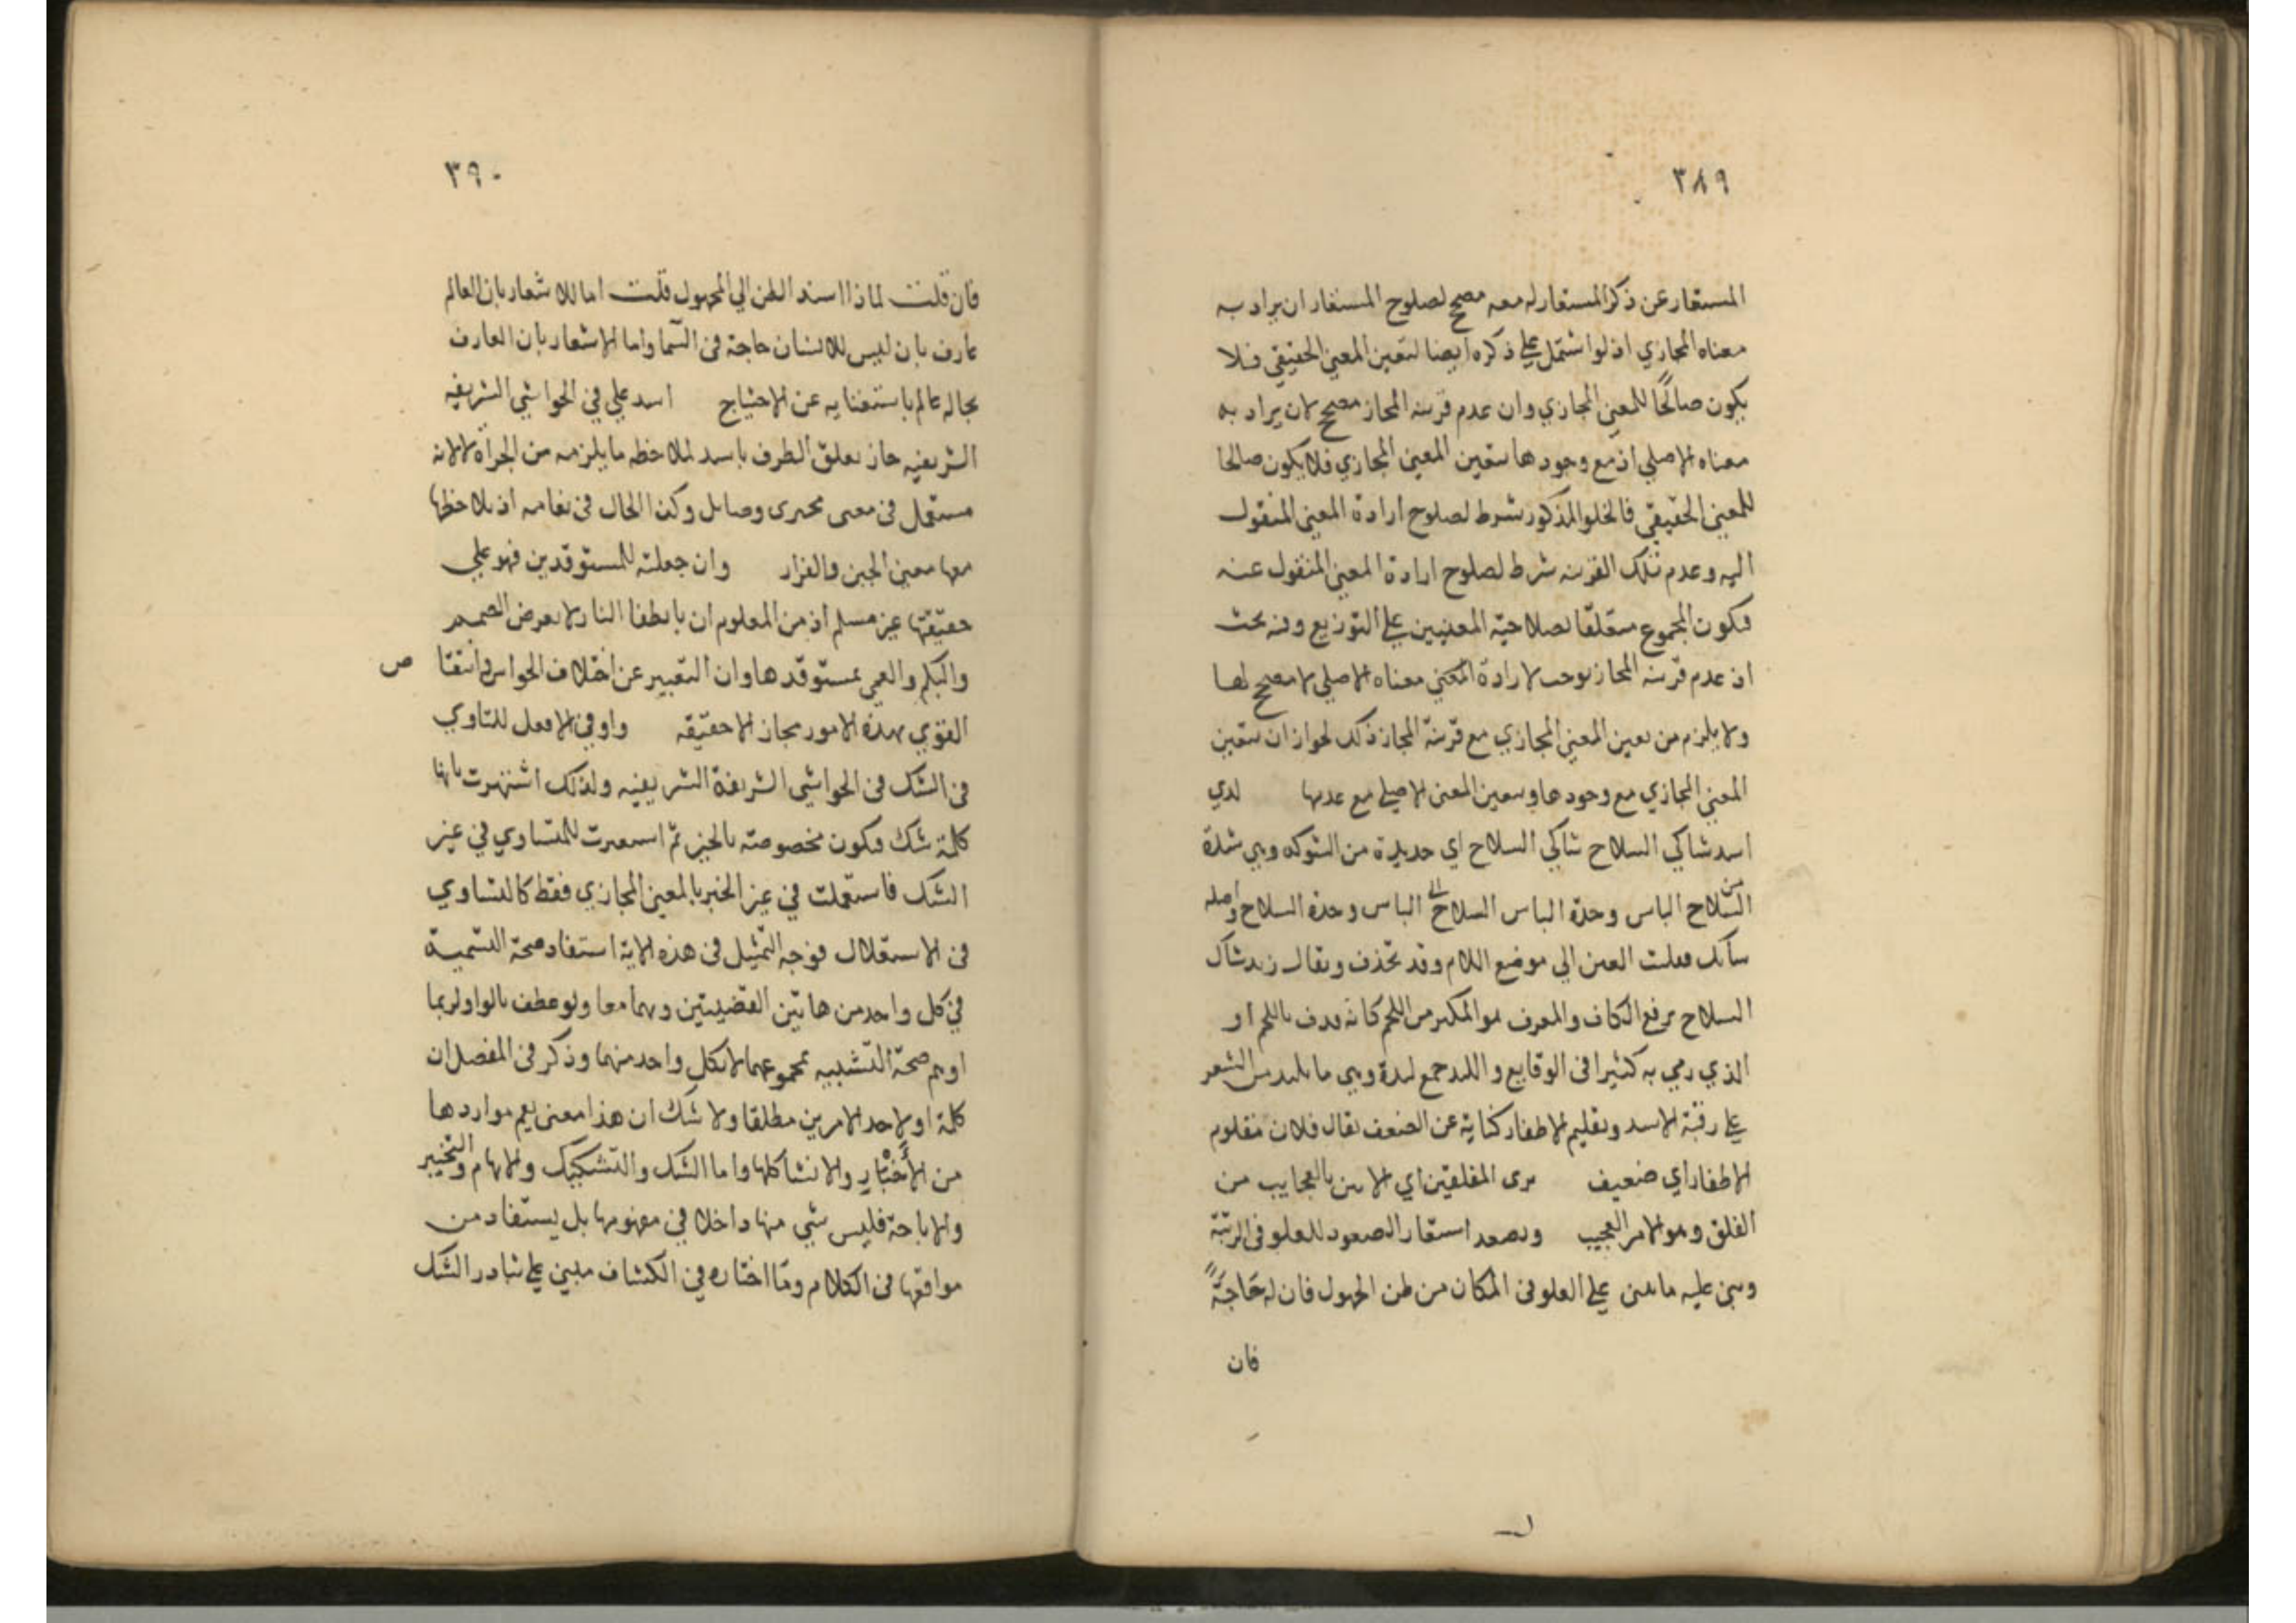 ٣٨٩
المستعار عن ذكر المستعار له معه مصحح لصلوح المستعار ان يراد به
معناه المجازي اذ لو اشتمل على ذكره ايضا لتعين المعنى الحقيقي فلا
يكون صالحًا للمعنى المجازي وان عدم قرينه المجاز مصحح لان يراد به
معناه الاصلي اذ مع وجودها يتعين المعنى المجازي فلا يكون صالحا
للمعنى الحقيقي فالخلو المذكور شرط لصلوح ارادة المعنى المنقول
اليه وعدم تلك القرينه شرط لصلوح ارادة المعنى المنقول عنه
فيكون المجموع متعلقا بصلاحية المعنيين على التوزيع وفيه بحث
اذ عدم قرينه المجاز يوجب لارادة معناه الاصلي لا مصحح لها
ولا يلزم من تعين المعنى المجازي مع قرينة المجاز ذلك لجواز ان يتعين
المعنى المجازي مع وجودها ويتعين المعنى الاصلي مع عدمها لدي
اسد شاكي السلاح شاكي السلاح اي حديدة من الشوكه وهي شدة
الباس وحدة السلاح واصله
شاك العين الي موضع اللام وقد تحذف ويقال زيد شاك
السلاح برفع الكاف والمعرف هو المكبر من اللحم كانه قذف باللحم او
الذي رمي به كثيرا في الوقايع واللبد جمع لبدة وهي ما تلبد من الشعر
على رقبة الاسد وتقليم الاظفار كناية عن الضعف يقال فلان مقلوم
الاظفار اي ضعيف يرى المفلقين اي الاتين بالعجايب من
الفلق وهو الامر العجيب ويصعد استعار الصعود للعلو في الرتبة
وبنى عليه ما يبنى على العلو في المكان من ظن الجهول فان له حَاجَةً
فان
٣٩٠
فان قلت لماذا اسند الظن الي المجهول قلت اما للاشعار بان العالم
عارف بان ليس للانسان حاجة في السما واما الاشعار بان العارف
بحاله عالم باستغنايه عن الاحتياج اسد علي في الحواشي الشريفيه
الشريفيه جاز تعلق الظرف باسد لملاحظه ما يلزمه من الجرأة لا لانه
مستعمل في معنى مجترى وصايل وكذا الحال في نعامه اذ يلاحظ
معها معنى الجبن والفرار وان جعلته للمستوقدين فهو على
حقيقتها غير مسلم اذ من المعلوم ان بانطفا النار لا يعرض الصمم
والبكم والعمي لمستوقدها وان التعبير عن اختلاف الحواس وانتقا ص
القوي بهذه الامور مجاز لا حقيقه واو في الاصل للتساوي
في الشك في الحواشي الشريفة الشريفيه ولذلك اشتهرت بانها
كلمة شك فيكون مخصوصته بالخبر ثم استعيرت للتساوي في غير
الشك فاستعملت في غير الخبر بالمعنى المجازي فقط كالتساوي
في الاستقلال فوجه التمثيل في هذه الاية استفاد صحة التسمية
في كل واحد من هاتين القضيتين وبهما معا ولو عطف بالواو لربما
اوهم صحة التشبيه بمجموعهما لا بكل واحد منهما وذكر في المفصل ان
كلمة او لاحد الامرين مطلقا ولا شك ان هذا معنى يعم مواردها
من الأَخْبَارِ والانشا كلها واما الشك والتشكيك والابهام والتخيير
والاباحة فليس شي منها داخلا في مفهومها بل يستفاد من
مواقعها في الكلام وما اختاره في الكشاف مبني على تبادر الشك